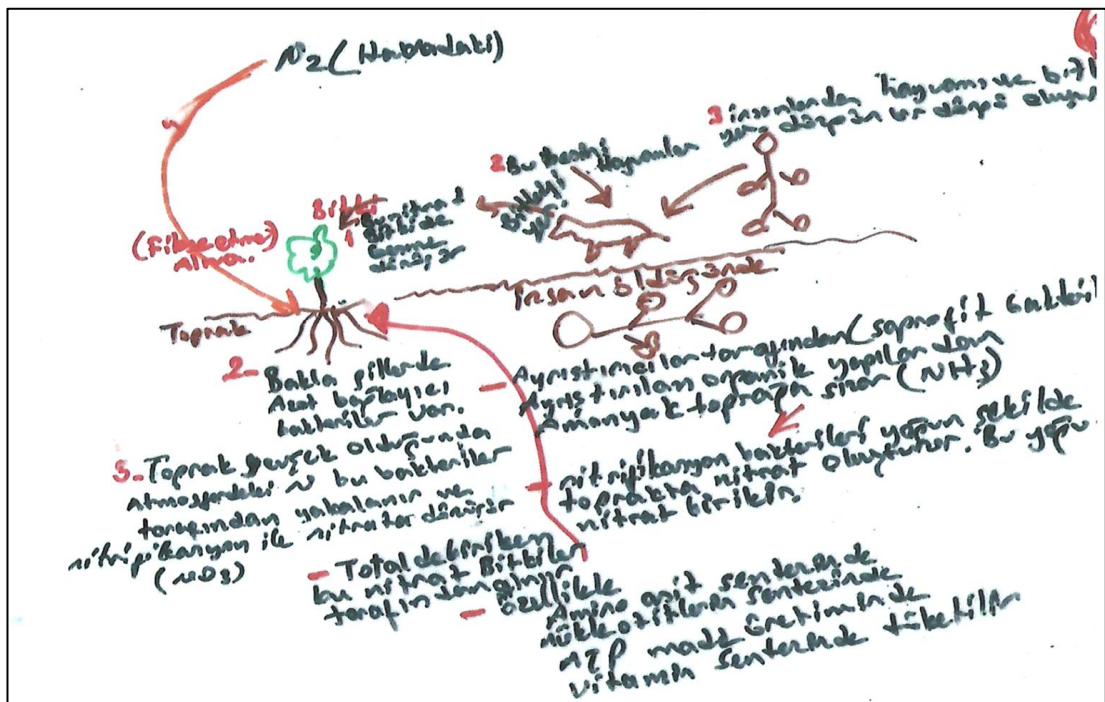 N2 (Havadaki)
3 insanlardan hayvana ve bitki
2 Bu besini Hayvanlar
Bitki
1 Bu nitrat
Bitkide
besine
dönüşür
(Fikse etme)
Alma.
Toprak
insan öldüğünde
2- Bakla gillerde
Azot bağlayıcı
bakteriler var.
3- Toprak gevşek olduğunda
Atmosferdeki N bu bakteriler
tarafından yakalanır ve
nitrifikasyon ile nitratar dönüşür
(NO3)
- Ayrıştırıcılar tarafından (saprofit bakteri
Ayrıştırılan organik yapılardan
Amonyak toprağa sızar (NH3)
- nitrifikasyon bakterileri yoğun şekilde
toprakta nitrat oluşturur. Bu yoğu
nitrat birikir.
- Totalde biriken
bu nitrat Bitkiler
tarafından alınır
- Özellikle
Amino asit sentezinde
nükleotitlerin sentezinde
ATP madd üretiminde
vitamin sentezinde tüketilir